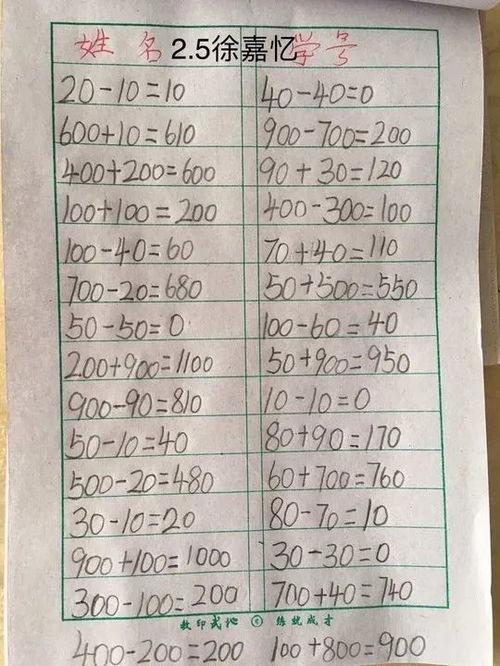 姓名 2.5徐嘉忆 学号
20-10=10 40-40=0
600+10=610 900-700=200
400+200=600 90+30=120
100+100=200 400-300=100
100-40=60 70+40=110
700-20=680 50+500=550
50-50=0 100-60=40
200+900=1100 50+900=950
900-90=810 10-10=0
50-10=40 80+90=170
500-20=480 60+700=760
30-10=20 80-70=10
900+100=1000 30-30=0
300-100=200 700+40=740
练就成才
400-200=200 100+800=900